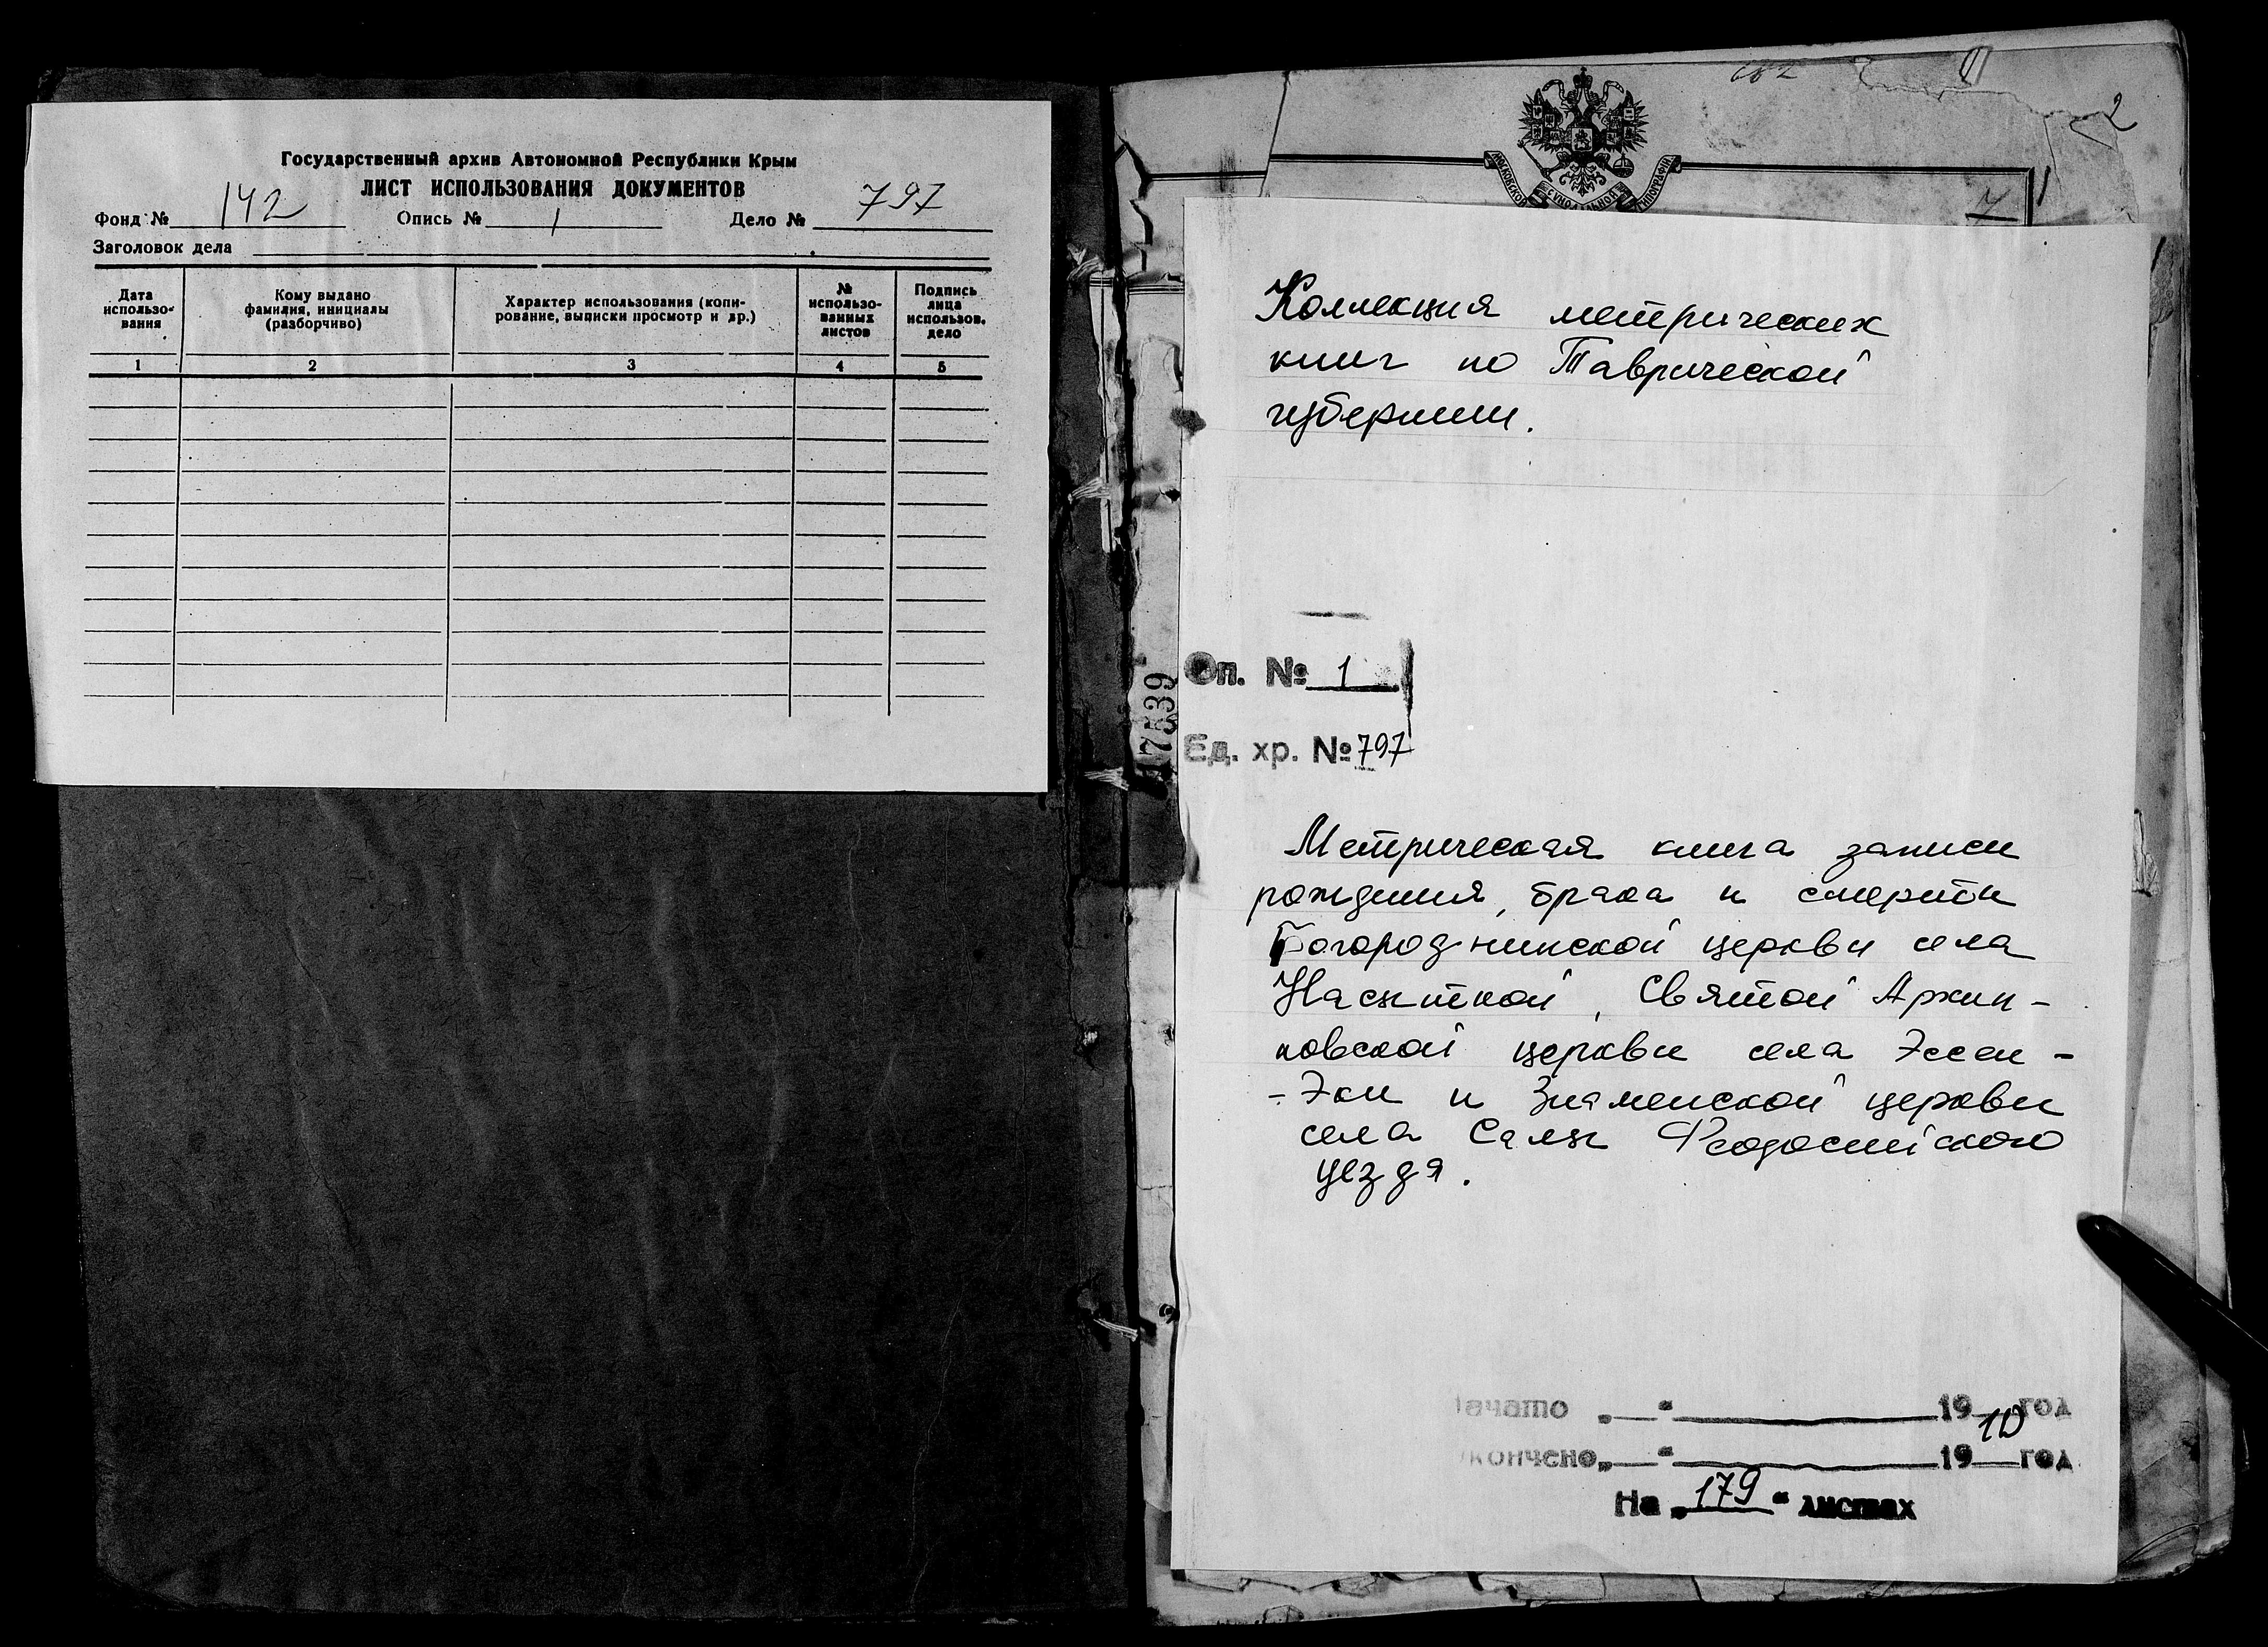 Государственный архив Автономной Республики Крым
ЛИСТ ИСПОЛЬЗОВАНИЯ ДОКУМЕНТОВ
Фонд № 142 Опись № 1 Дело № 797
Заголовок дела
Дата использо-вания
Кому выдано фамилия, инициалы (разборчиво)
Характер использования (копи-рование, выписки просмотр и др.)
№ использо-ванных листов
Подпись лица использов. дело
1 2 3 4 5
682
2
МОСКОВСКОЙ СУНОДАЛЬНОЙ ТИПОГРАФІИ
7
Коллекция метрических
книг по Таврической
губернии.
Оп. № 1
17539
Ед. хр. № 797
Метрическая книга записи
рождения, брака и смерти
Богородничской церкви села
Насыпкой, Святой Архип-
повской церкви села Эссен-
-Эки и Знаменской церкви
села Салы Феодосийского
уезда.
Начато „ “ 1910 год
Окончено „ “ 19 год
На „179“ листах